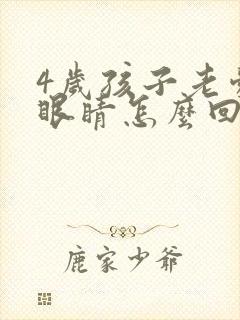 4歲孩子老
眼睛怎麼回
鹿家少爺